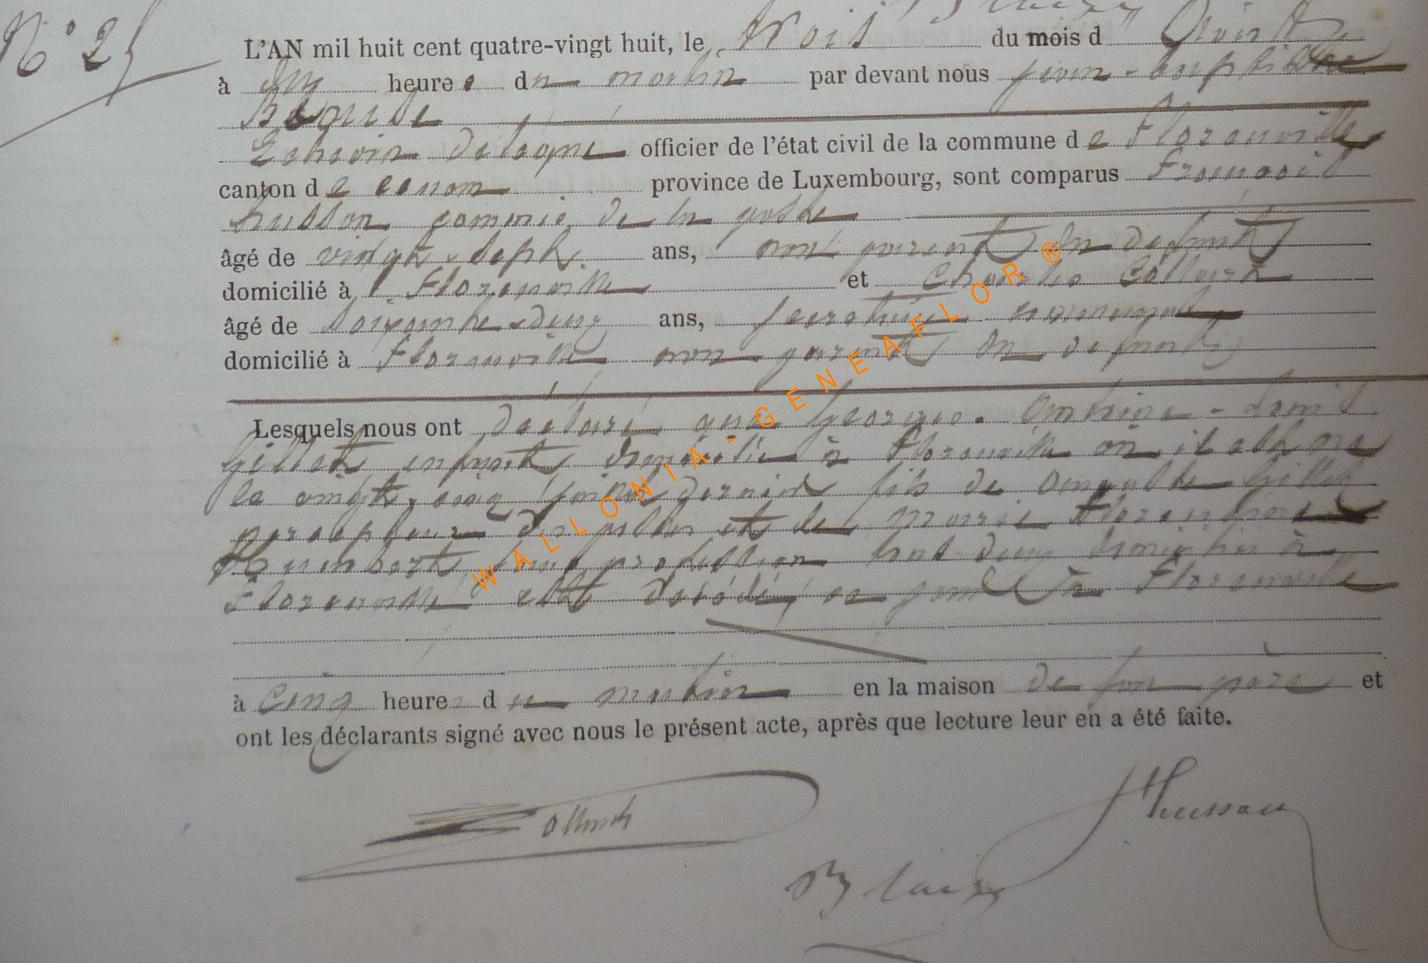 N° 25
L'AN mil huit cent quatre-vingt huit, le trois du mois d' Août
à dix heures du matin par devant nous Jean-Baptiste
Echevin délégué officier de l'état civil de la commune de Florenville
canton de province de Luxembourg, sont comparus François
husson commis de la poste
âgé de vingt sept ans, non parent du défunt
domicilié à Florenville et Charles Collart
âgé de soixante-deux ans, secrétaire communal
domicilié à Florenville non parent du défunt
Lesquels nous ont déclaré que Georges. Antoine - Louis
Gillet enfant domicilié à Florenville où il est né
le vingt cinq juillet dernier fils de Gillet
percepteur des postes et de Marie Florentine
Humbert, sans profession tous deux domiciliés à
Florenville est décédé, ce jour à Florenville
à cinq heures du matin en la maison de son père et
ont les déclarants signé avec nous le présent acte, après que lecture leur en a été faite.
Collart
Husson
WALLONIA-GENEAFLOR®